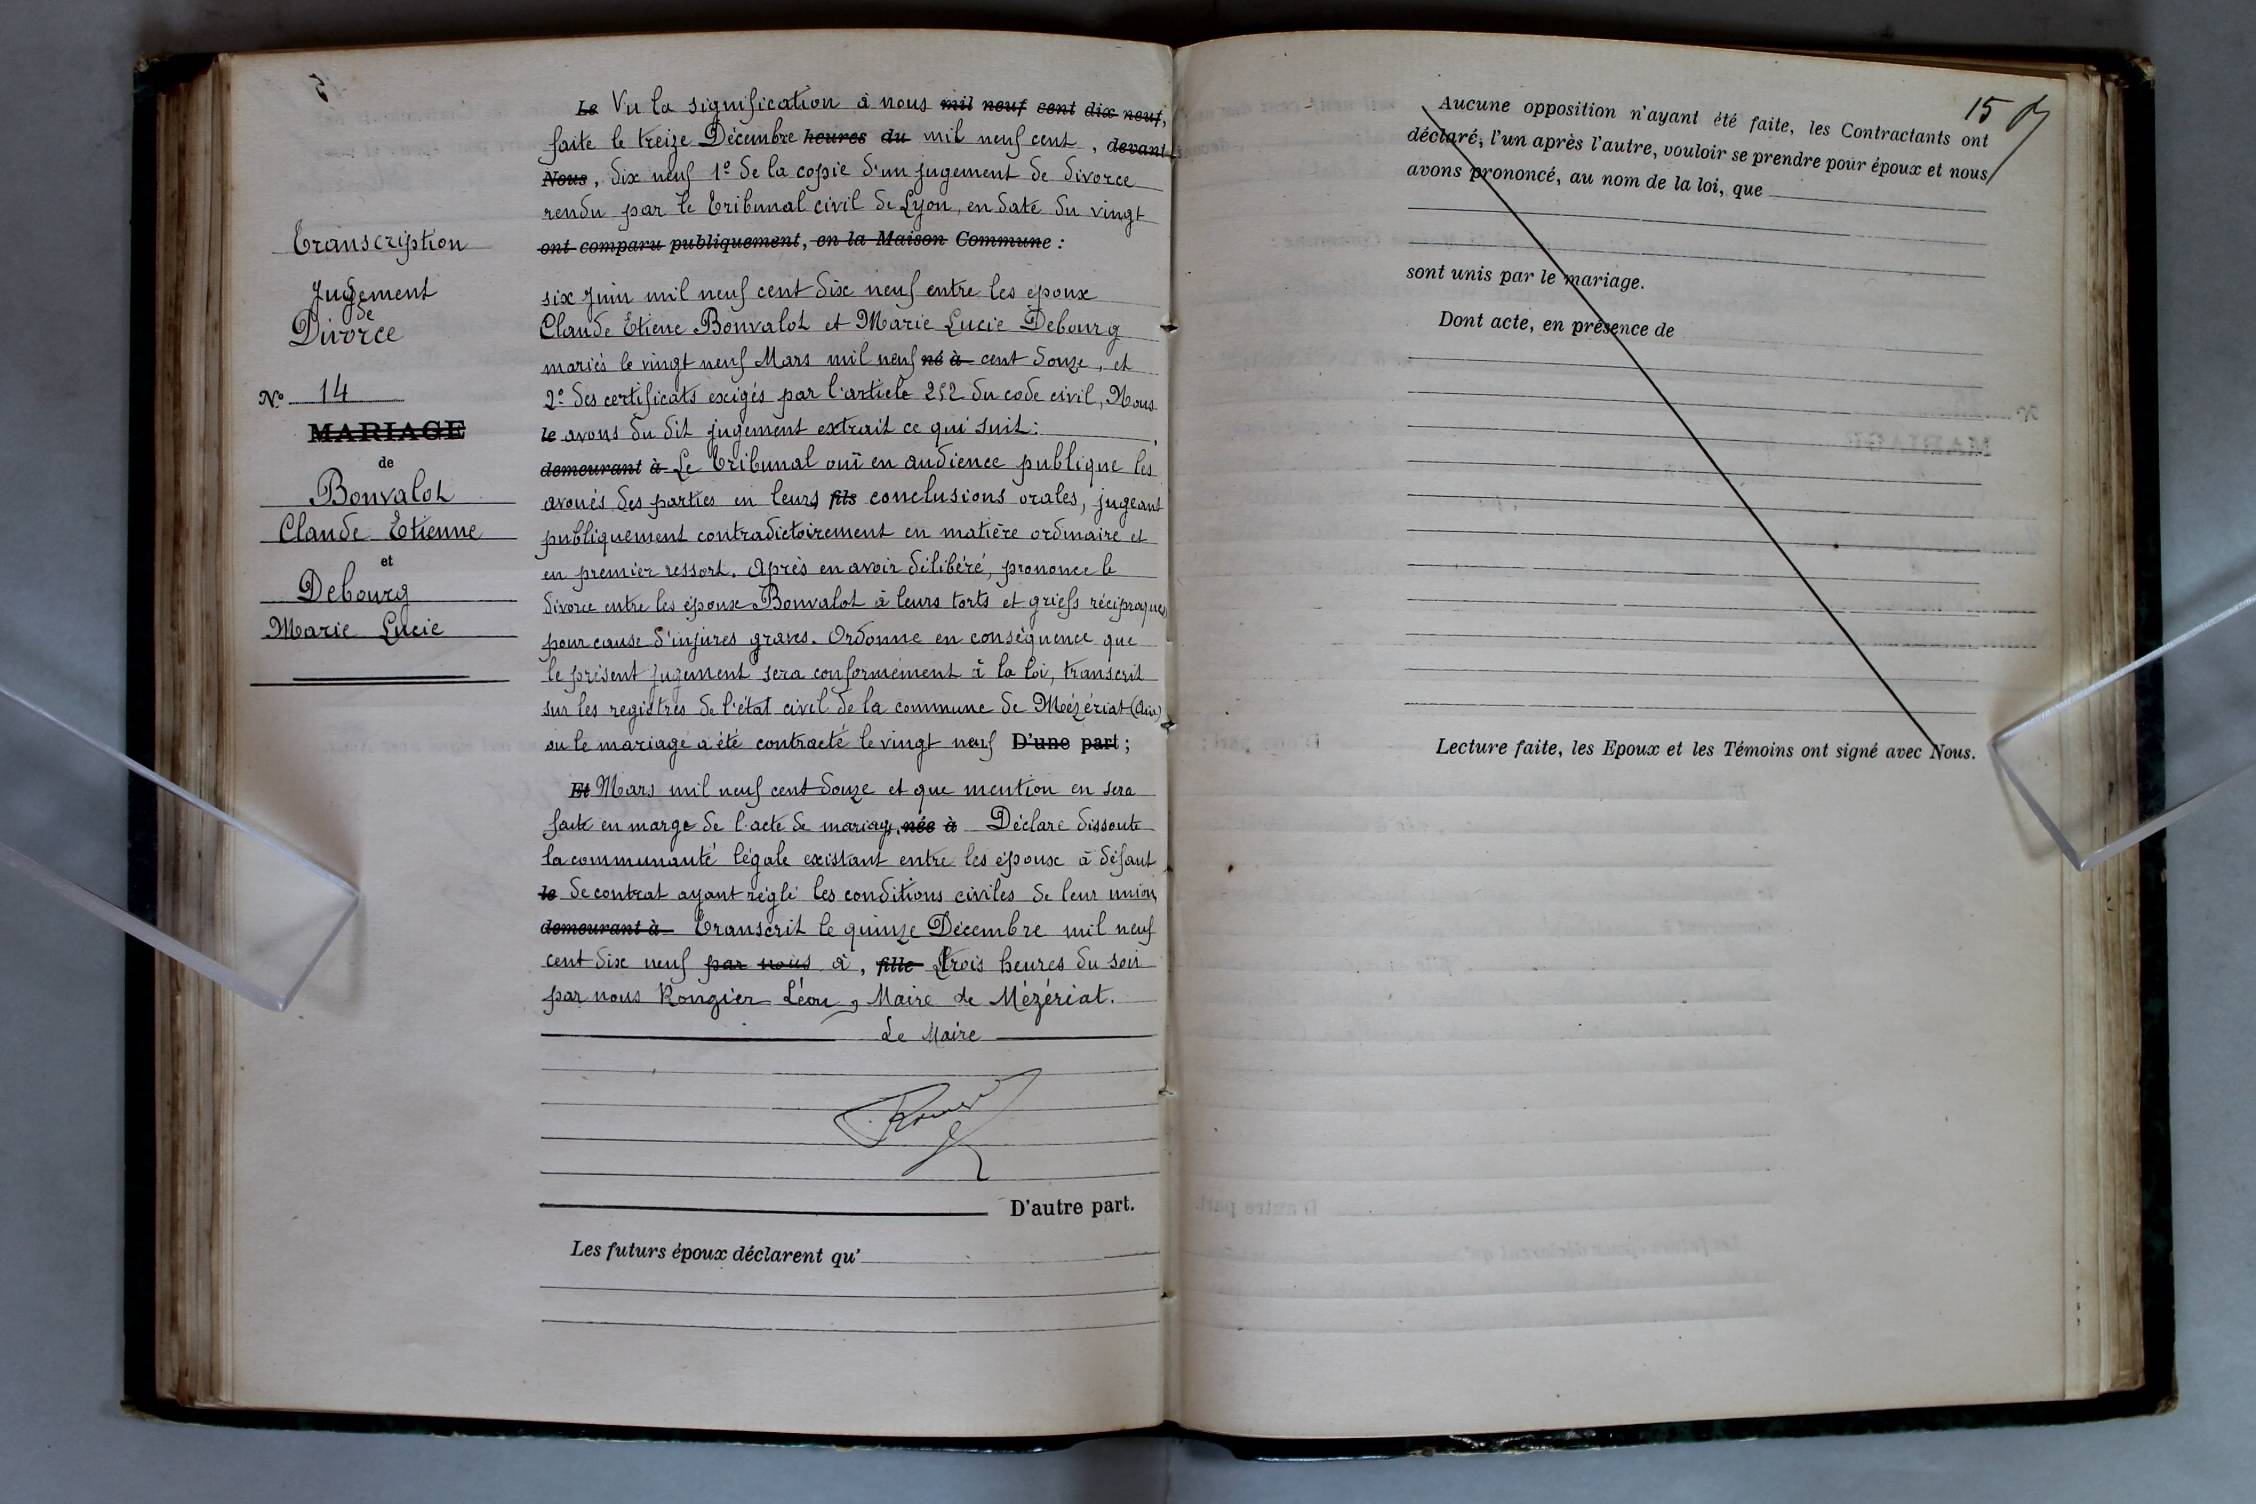 Transcription
Jugement
de
Divorce
N° 14
MARIAGE
de
Bonvalot
Claude Etienne
et
Debourg
Marie Lucie
Le Vu la signification à nous mil neuf cent dix neuf,
faite le treize Décembre heures du mil neuf cent, devant
Nous, dix neuf 1° de la copie d'un jugement de divorce
rendu par le Tribunal civil de Lyon, en date du vingt
ont comparu publiquement, en la Maison Commune :
six Juin mil neuf cent dix neuf entre les époux
Claude Etiene Bonvalot et Marie Lucie Debourg
mariés le vingt neuf Mars mil neuf né à cent douze, et
2° des certificats exigés par l'article 252 du code civil, Nous
le avons du dit jugement extrait ce qui suit :
demeurant à Le Tribunal ouï en audience publique les
avoués des parties en leurs fils conclusions orales, jugeant
publiquement contradictoirement en matière ordinaire et
en premier ressort. Après en avoir délibéré, prononce le
divorce entre les époux Bonvalot à leurs torts et griefs réciproques
pour cause d'injures graves. Ordonne en conséquence que
le présent jugement sera conformément à la loi, transcrit
sur les registres de l'état civil de la commune de Mézériat (Ain)
ou le mariage a été contracté le vingt neuf D'une part ;
Et Mars mil neuf cent douze et que mention en sera
faite en marge de l'acte de mariage, née à Déclare dissoute
la communauté légale existant entre les époux à défaut
le de contrat ayant réglé les conditions civiles de leur union,
demeurant à Transcrit le quinze Décembre mil neuf
cent dix neuf par nous à, fille trois heures du soir
par nous Rongier Léon, Maire de Mézériat.
Le Maire
D'autre part.
Les futurs époux déclarent qu'
15
Aucune opposition n'ayant été faite, les Contractants ont
déclaré, l'un après l'autre, vouloir se prendre pour époux et nous
avons prononcé, au nom de la loi, que
sont unis par le mariage.
Dont acte, en présence de
Lecture faite, les Epoux et les Témoins ont signé avec Nous.